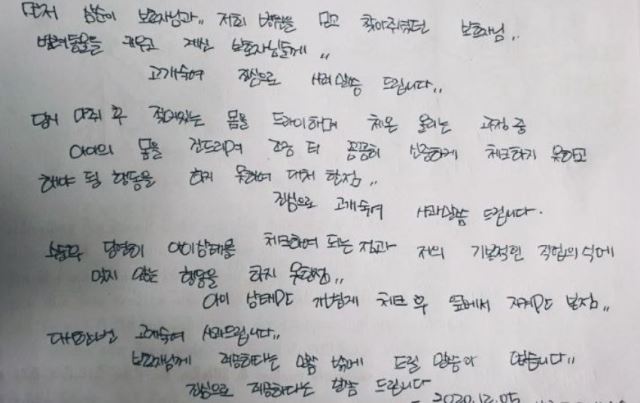 먼저 순순이 보호자님과,, 저희 병원을 믿고 찾아주셨던 보호자님,,
반려동물을 키우고 계신 보호자님들께,,
고개숙여 진심으로 사죄말씀 드립니다,,
당시 마취 후 젖어있는 몸을 드라이하며 체온 올리는 과정 중
아이의 몸을 건드리며 조금 더 꼼꼼히 신중하게 체크하지 못하고
해야 될 행동을 하지 못하여 대처 한점,,
진심으로 고개숙여 사과말씀 드립니다.
당연히 아이상태를 체크하여 되는 점과 저의 기본적인 직업의식에
맞지 않는 행동을 하지 못한점,,
아이 상태만 체크 후 옆에서 지켜만 보점,,
다시한번 고개숙여 사과드립니다,,
보호자님께 죄송하다는 말씀 밖에 드릴 말씀이 없습니다,,
진심으로 죄송하다는 말씀 드립니다
2020.12.05